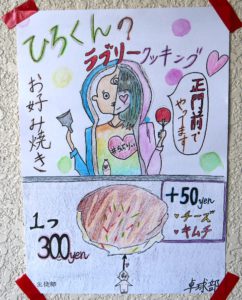 ひろくんの
ラブリークッキング
お好み焼き
正門前で
やってます
1つ
300yen
+50yen
チーズ
キムチ
卓球部